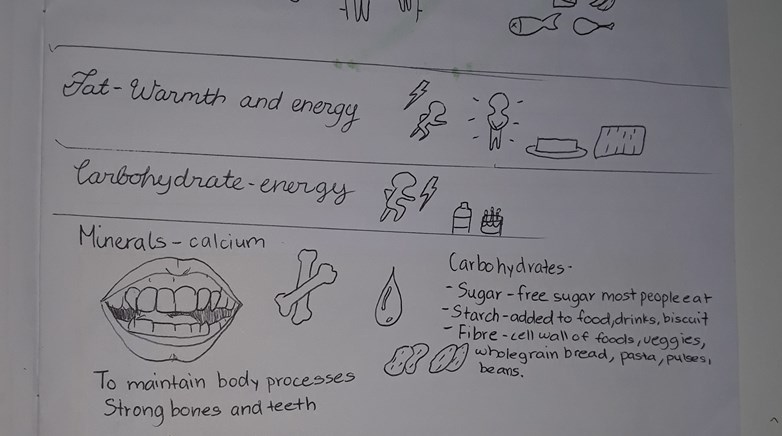 Fat - Warmth and energy
Carbohydrate - energy
Minerals - calcium
To maintain body processes
Strong bones and teeth
Carbohydrates -
- Sugar - free sugar most people eat
- Starch - added to food, drinks, biscuit
- Fibre - cell wall of foods, veggies,
wholegrain bread, pasta, pulses,
beans.